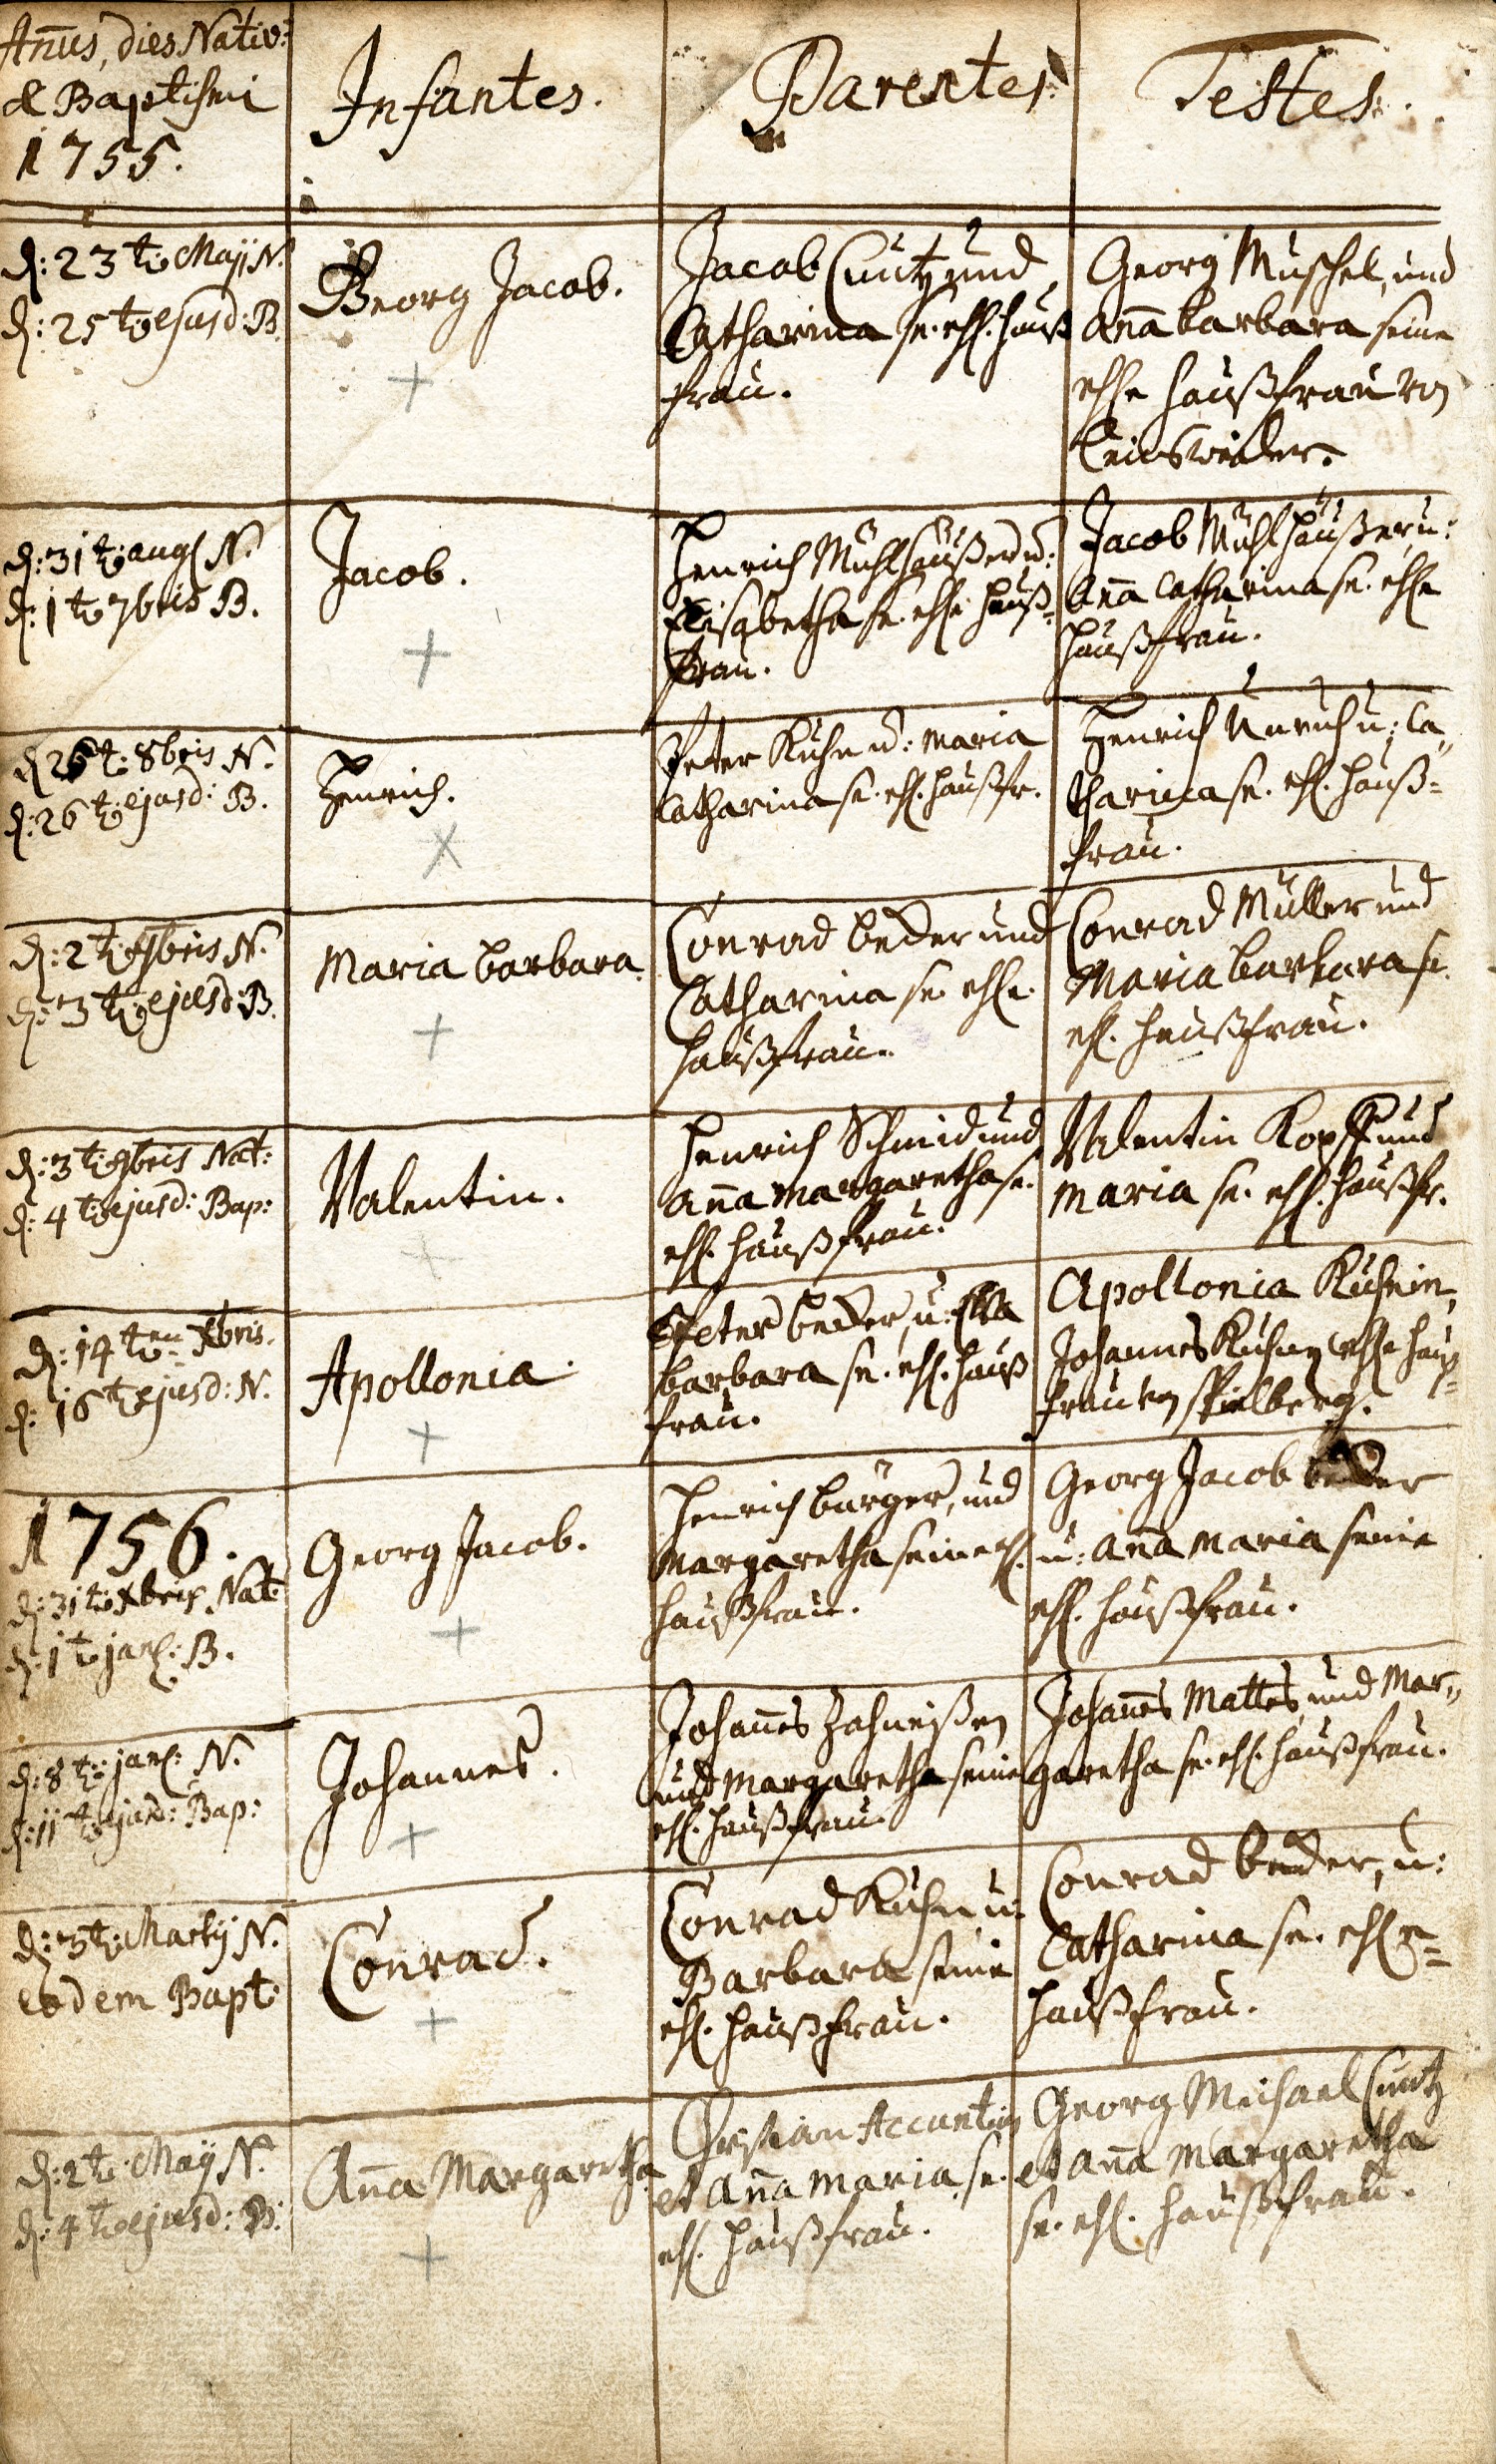 Añus, dies Nativ:
& Baptismi
1755.
Infantes.
Parentes.
Testes.
d: 23t: Maij N.
d: 25t: ejusd: B.
Georg Jacob.
Jacob Cuntz und
Catharina se. ehl. hauß
frau.
Georg Muschel, und
Aña barbara seine
ehle haußfrau von
d: 31t: aug. N.
d: 1t: 7bris B.
Jacob.
Henrich Mühlhäußer u:
Elisabetha se. ehle hauß-
frau.
Jacob Mühlhäußer, u:
Aña Catharina se. ehle
haußfrau.
d 26t: 8bris N.
d: 26t: ejusd: B.
Henrich.
Peter Kuhn u: Maria
Catharina se. ehl. haußfr.
Henrich Unruh u: Ca„
tharina se. ehl. hauß-
frau.
d: 2t: 9bris N.
d: 3t: ejusd: B.
Maria barbara.
Conrad beder und
Catharina se ehle.
haußfrau.
Conrad Müller und
Maria barbara se.
ehl. haußfrau.
d: 3t: 9bris Nat:
d: 4t: ejusd: Bap:
Valentin.
Henrich Schmid und
Aña Margaretha se.
ehl. haußfrau.
Valentin Kopff und
Maria se. ehl. haußfr.
d: 14ten Xbris.
d: 16t: ejusd: N.
Apollonia.
Peter beder, u:
barbara se. ehl. hauß
frau.
Apollonia Kuhnin,
Johannes Kuhnen ehle hauß-
frau von Spielberg.
1756.
d: 31t: Xbris Nat:
d: 1t: jan: B.
Georg Jacob.
Henrich bürger, und
Margaretha seine ehl.
haußfrau.
Georg Jacob beder
u: Aña Maria seine
ehl. haußfrau.
d: 8t: jan: N.
d: 11t: ejusd: Bap:
Johannes.
Johañes Zahneißen
und Margaretha seine
ehl. haußfrau.
Johañes Mattes, und Mar„
garetha se. ehl. haußfrau.
d: 5t: Martij N.
eodem Bapt:
Conrad.
Conrad Kuhn u:
Barbara seine
ehl. haußfrau.
Conrad beder, u:
Catharina se. ehle-
haußfrau.
d: 2t: Maij N.
d: 4t: ejusd: B:
Aña Margaretha.
Christian
et Aña Maria se.
ehl. haußfrau.
Georg Michael Cuntz
et Aña Margaretha
se. ehl. haußfrau.